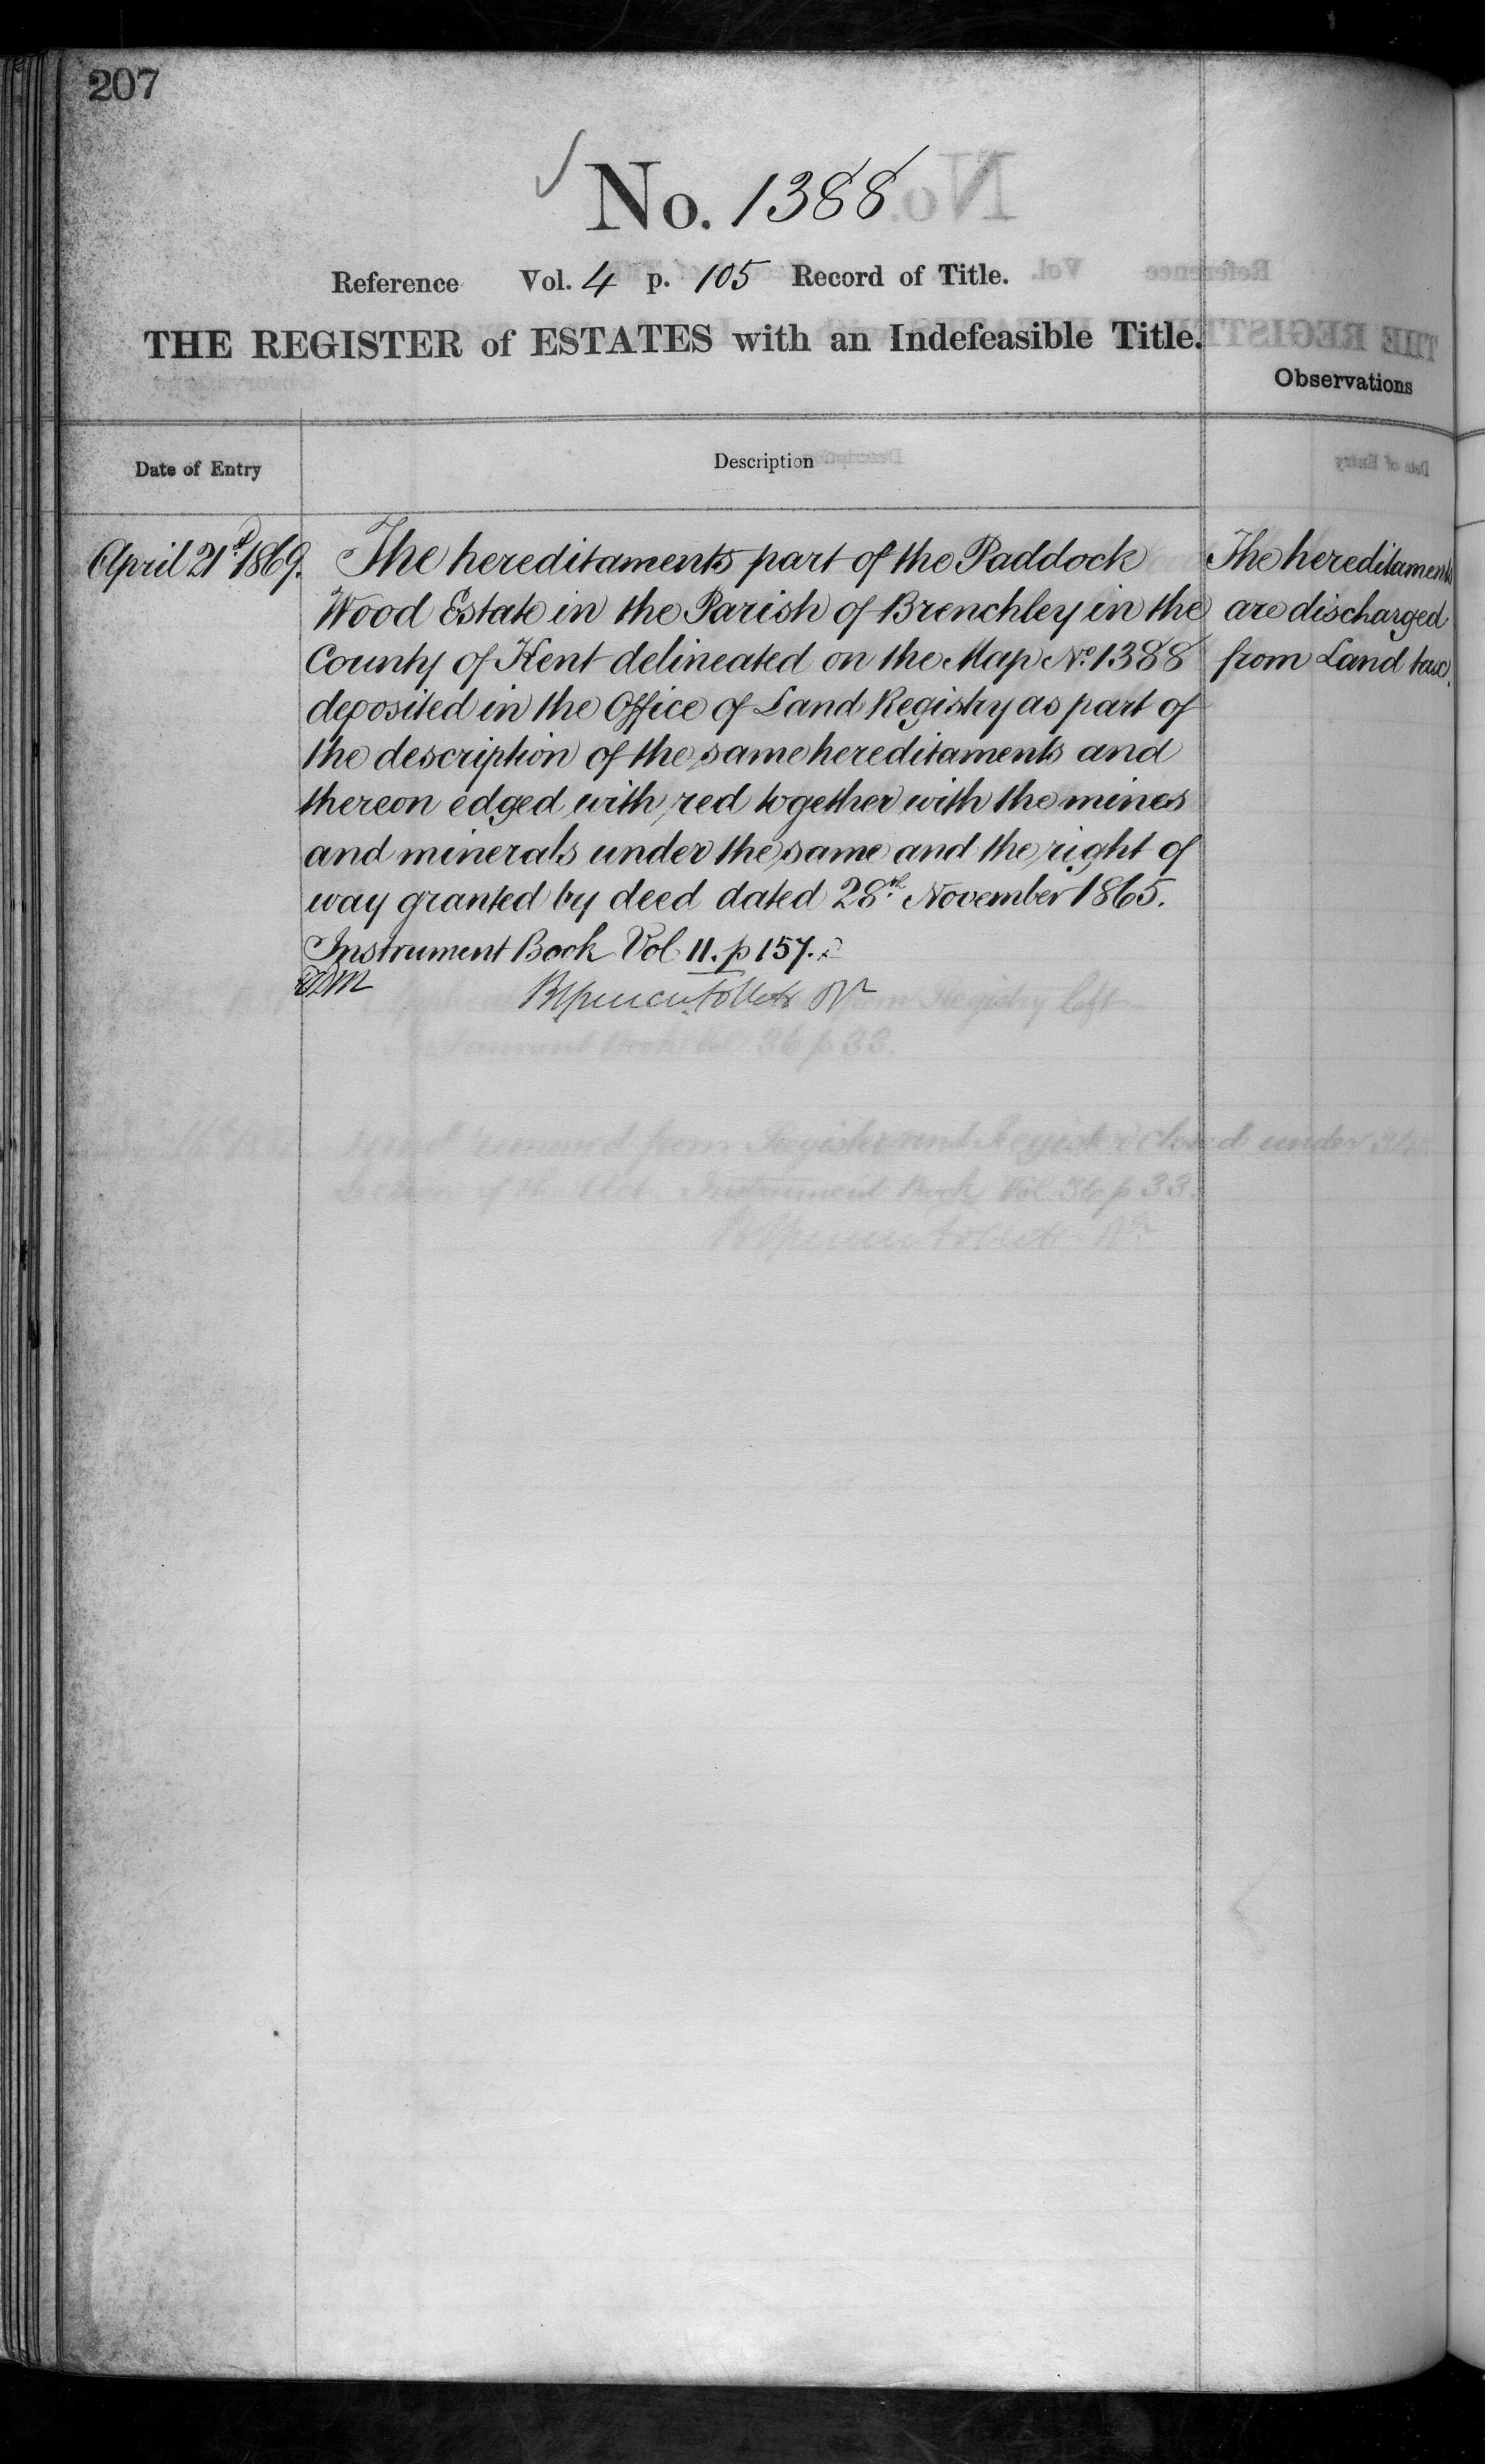 207
No. 1388
Reference Vol. 4 p. 105 Record of Title.
THE REGISTER of ESTATES with an Indefeasible Title.
Observations
Date of Entry
Description
April 21st 1869.
The hereditaments part of the Paddock
Wood Estate in the Parish of Brenchley in the
County of Kent delineated on the Map No. 1388
deposited in the Office of Land Registry as part of
the description of the same hereditaments and
thereon edged with red together with the mines
and minerals under the same and the right of
way granted by deed dated 28th November 1865.
Instrument Book Vol 11. p 157.
The hereditaments
are discharged
from Land tax.
Registry left
Instrument Book Vol 36 p 33.
removed from Register and Register closed under 34
Section of the Act. Instrument Book Vol 36 p 33.